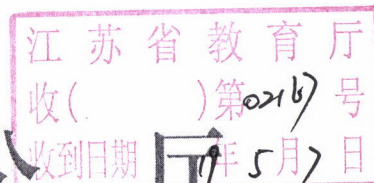 江苏省教育厅
收( )第0216)号
收到日期 19年5月7日